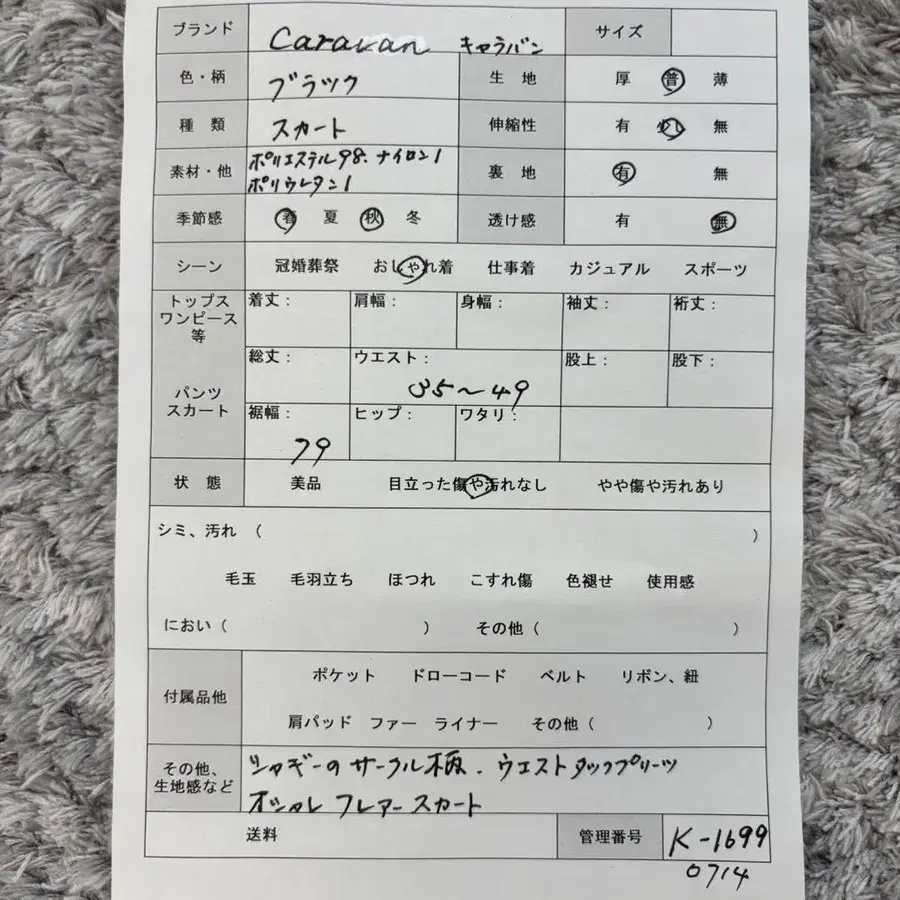 ブランド Caravan キャラバン サイズ
色・柄 ブラック 生 地 厚 普 薄
種 類 スカート 伸縮性 有 少し 無
素材・他 ポリエステル98.ナイロン1
ポリウレタン1
裏 地 有 無
季節感 春 夏 秋 冬 透け感 有 無
シーン 冠婚葬祭 おしゃれ着 仕事着 カジュアル スポーツ
トップス
ワンピース
等
着丈: 肩幅: 身幅: 袖丈: 裄丈:
パンツ
スカート
総丈: ウエスト: 35～49 股上: 股下:
裾幅: 79 ヒップ: ワタリ:
状 態 美品 目立った傷や汚れなし やや傷や汚れあり
シミ、汚れ ( )
毛玉 毛羽立ち ほつれ こすれ傷 色褪せ 使用感
におい ( ) その他 ( )
付属品他 ポケット ドローコード ベルト リボン、紐
肩パッド ファー ライナー その他 ( )
その他、
生地感など
シャギーのサークル柄.ウエストタックプリーツ
オシャレ フレアースカート
送料 管理番号 K-1699
0714